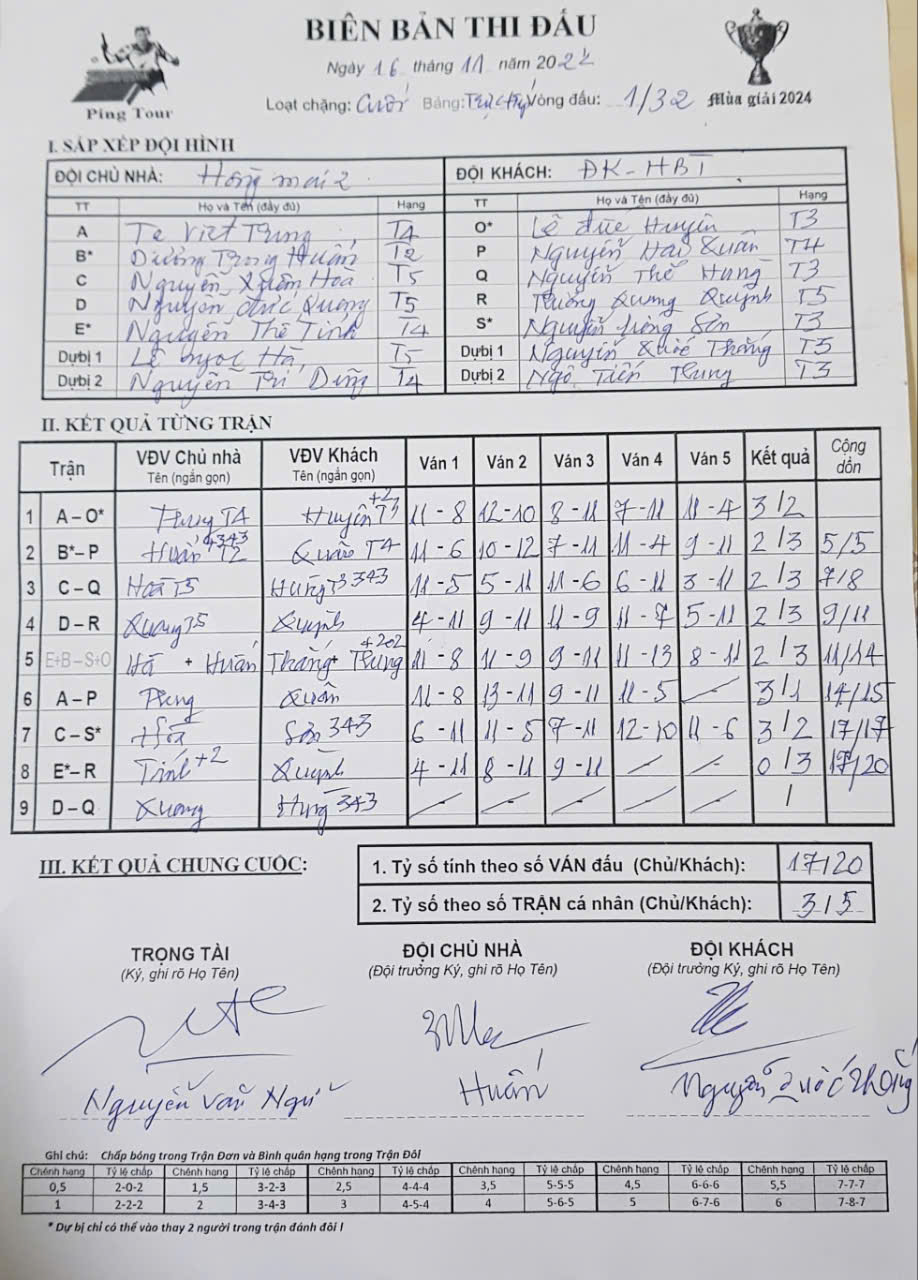 BIÊN BẢN THI ĐẤU
Ping Tour
Ngày 16 tháng 11 năm 2024
Loạt chặng: Cuối Bảng: Vòng đấu: 1/32 Mùa giải 2024
I. SẮP XẾP ĐỘI HÌNH
ĐỘI CHỦ NHÀ: Hồng mai 2 ĐỘI KHÁCH: ĐK-HBT
TT Họ và Tên (đầy đủ) Hạng TT Họ và Tên (đầy đủ) Hạng
A Tạ Việt Trung T4 O* Lê Đức Huyên T3
B* Dương Trọng Huấn T2 P Nguyễn Hải Xuân T4
C Nguyễn Xuân Hoà T5 Q Nguyễn Thế Hưng T3
D Nguyễn Đức Quang T5 R Quang Quỳnh T5
E* Nguyễn Thế Tính T4 S* Nguyễn Sơn T3
Dự bị 1 Lê Ngọc Hà T5 Dự bị 1 Nguyễn Quốc Thắng T5
Dự bị 2 Nguyễn Trí Dũng T4 Dự bị 2 Ngô Tiến Trung T3
II. KẾT QUẢ TỪNG TRẬN
Trận VĐV Chủ nhà Tên (ngắn gọn) VĐV Khách Tên (ngắn gọn) Ván 1 Ván 2 Ván 3 Ván 4 Ván 5 Kết quả Cộng dồn
1 A – O* Trung T4 Huyên +2 11 - 8 12 - 10 8 - 11 7 - 11 11 - 4 3 / 2
2 B* – P Huấn T2 343 Quân T4 11 - 6 10 - 12 7 - 11 11 - 4 9 - 11 2 / 3 5/5
3 C – Q Hoà T5 Hưng T3 343 11 - 5 5 - 11 11 - 6 6 - 11 3 - 11 2 / 3 7/8
4 D – R Quang T5 Quỳnh 4 - 11 9 - 11 11 - 9 11 - 7 5 - 11 2 / 3 9/11
5 E+B – S+O Hà + Huấn Thắng + Trung +202 11 - 8 11 - 9 9 - 11 11 - 13 8 - 11 2 / 3 11/14
6 A – P Trung Xuân 11 - 8 13 - 11 9 - 11 11 - 5 - 3 / 1 14/15
7 C – S* Hoà Sơn 343 6 - 11 11 - 5 7 - 11 12 - 10 11 - 6 3 / 2 17/17
8 E* – R Tính +2 Quỳnh 4 - 11 8 - 11 9 - 11 - - 0 / 3 17/20
9 D – Q Quang Hưng 343 - - - - - /
III. KẾT QUẢ CHUNG CUỘC:
1. Tỷ số tính theo số VÁN đấu (Chủ/Khách): 17/20
2. Tỷ số theo số TRẬN cá nhân (Chủ/Khách): 3/5
TRỌNG TÀI ĐỘI CHỦ NHÀ ĐỘI KHÁCH
(Ký, ghi rõ Họ Tên) (Đội trưởng Ký, ghi rõ Họ Tên) (Đội trưởng Ký, ghi rõ Họ Tên)
Nguyễn Văn Huấn Nguyễn Quốc Thắng
Ghi chú: Chấp bóng trong Trận Đơn và Bình quân hạng trong Trận Đôi
Chênh hạng Tỷ lệ chấp Chênh hạng Tỷ lệ chấp Chênh hạng Tỷ lệ chấp Chênh hạng Tỷ lệ chấp Chênh hạng Tỷ lệ chấp Chênh hạng Tỷ lệ chấp
0,5 2-0-2 1,5 3-2-3 2,5 4-4-4 3,5 5-5-5 4,5 6-6-6 5,5 7-7-7
1 2-2-2 2 3-4-3 3 4-5-4 4 5-6-5 5 6-7-6 6 7-8-7
* Dự bị chỉ có thể vào thay 2 người trong trận đánh đôi !